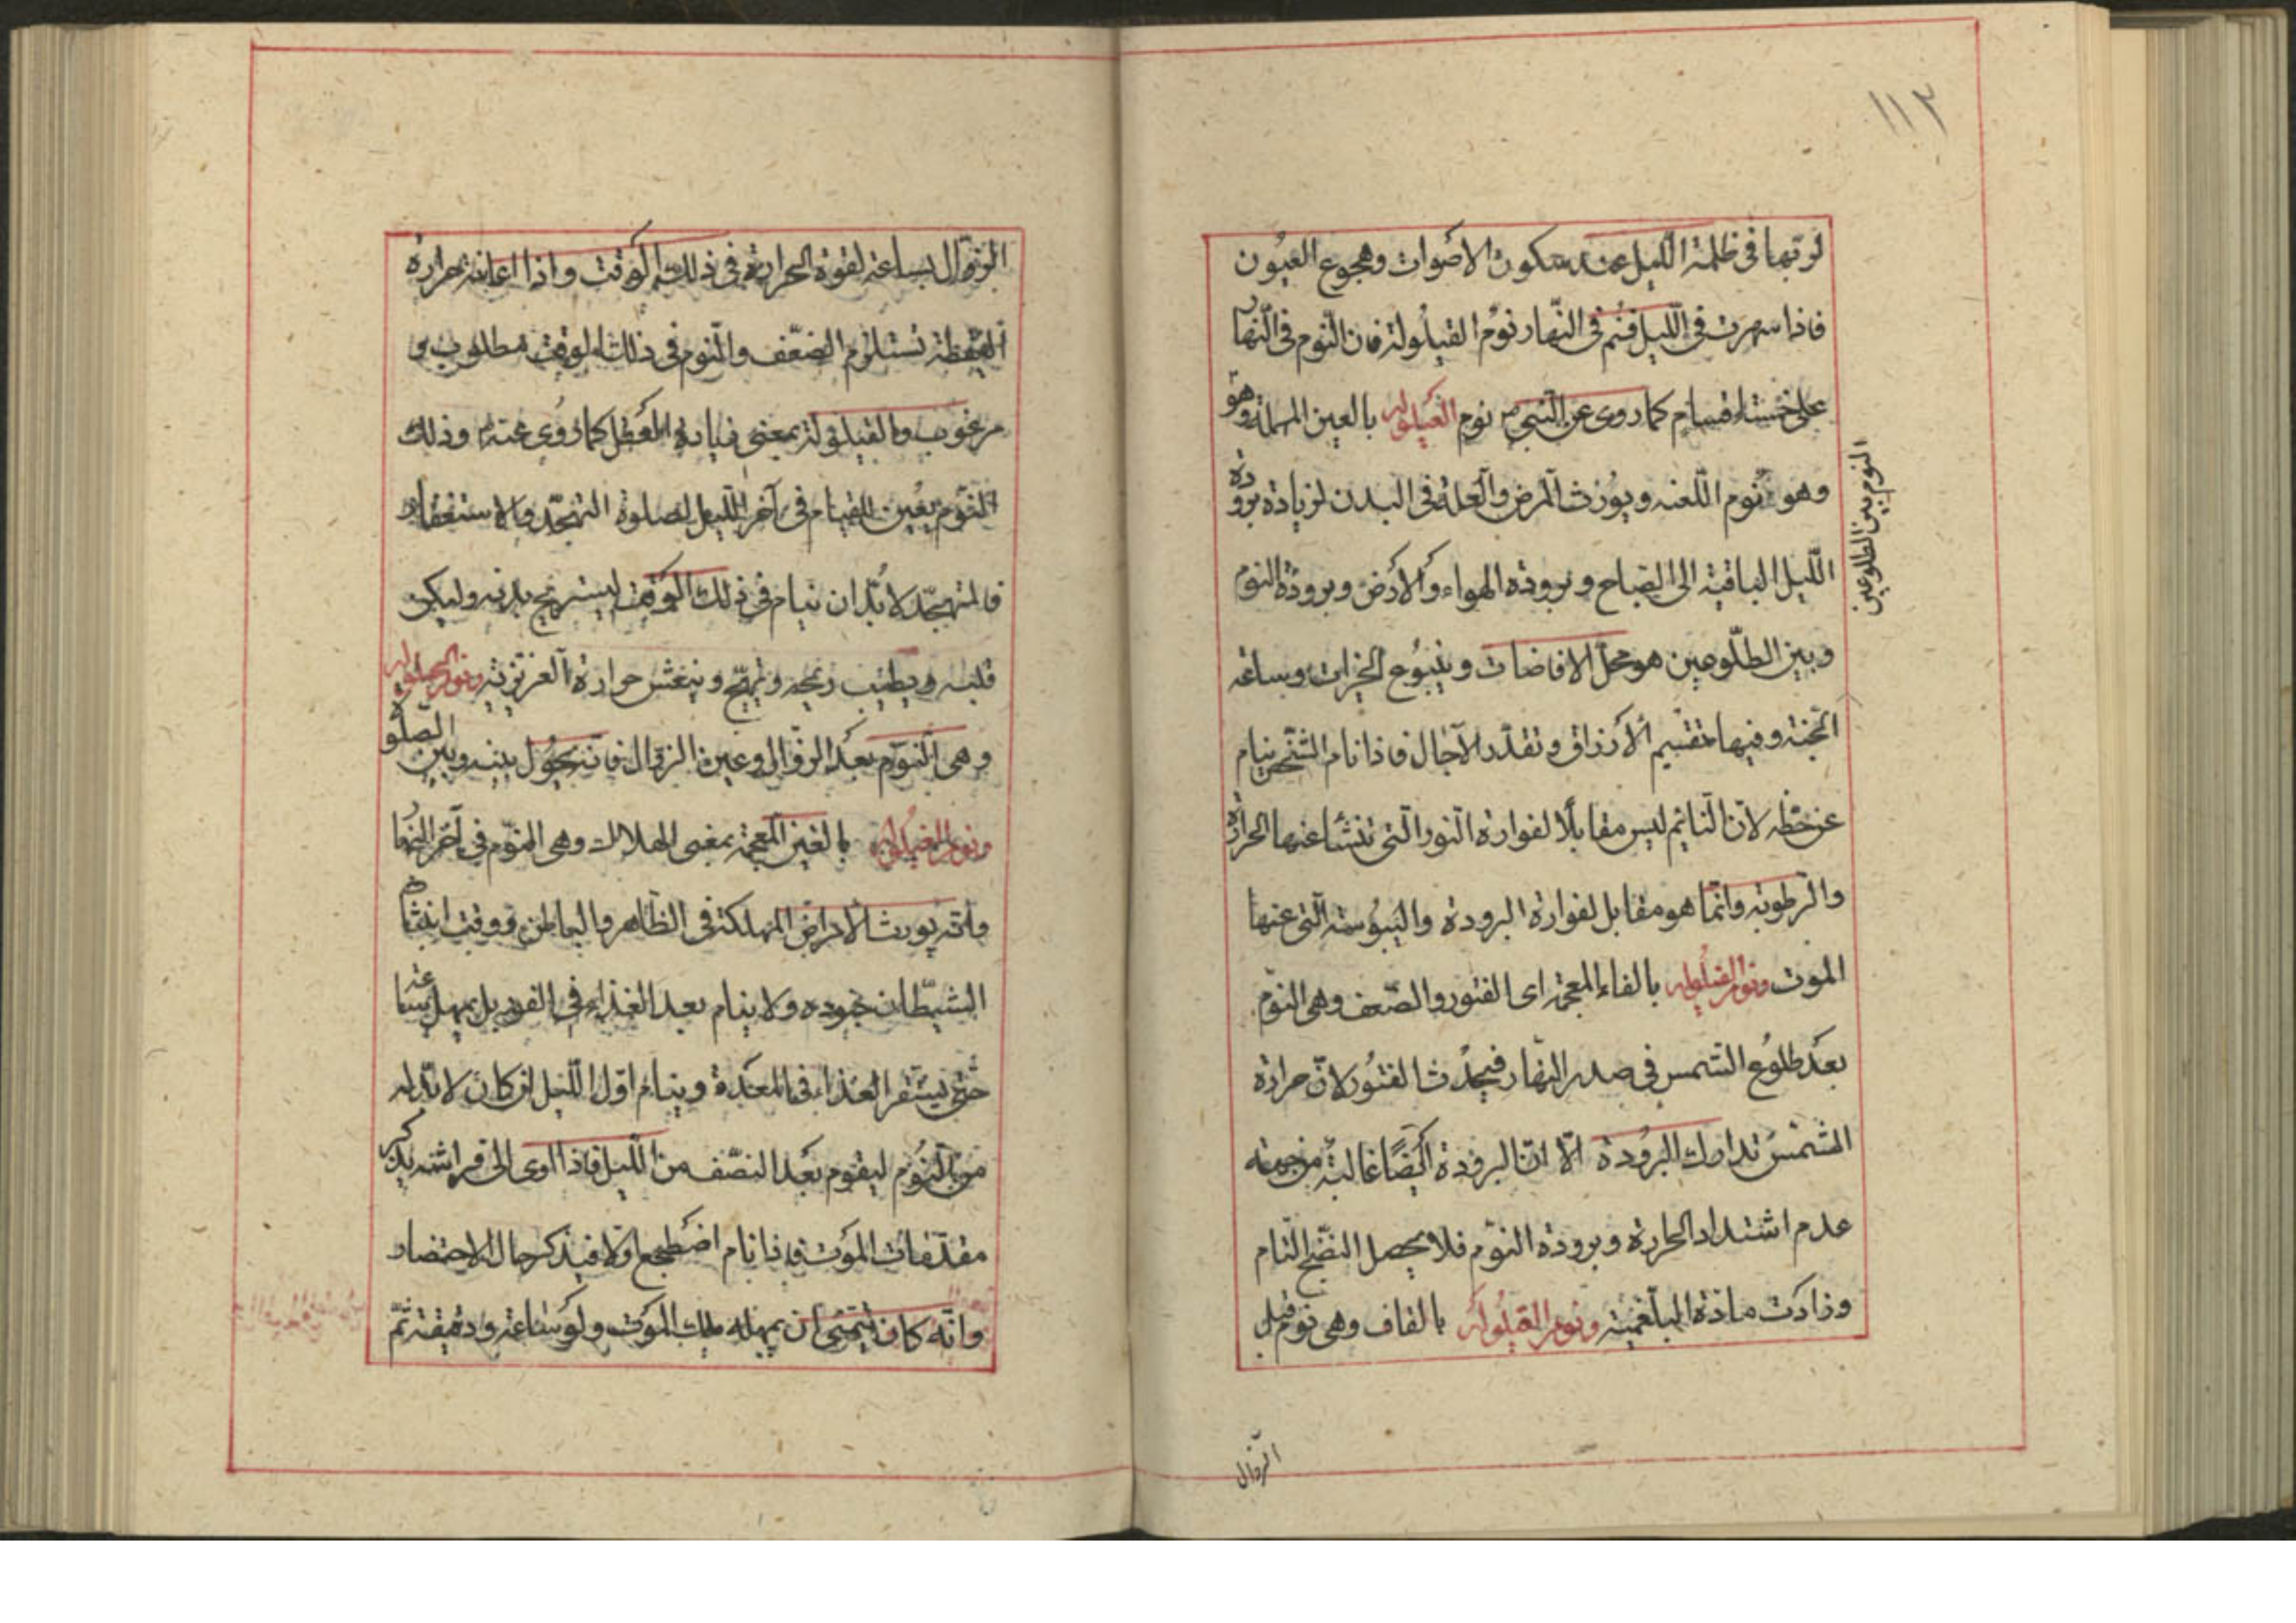 ١١٢
لربّها فى ظلمة اللّيل عند سكون الأصوات وهجوع العيون
فاذا سهرت فى اللّيل فنم فى النّهار نوم القيلولة فان النّوم فى النّهار
على خمسة اقسام كما روى عن النّبى ص نوم العيلوله بالعين المهملة وهو
وهو نوم اللّعنه ويورث المرض والعلة فى البدن لزيادة برودة
اللّيل الباقية الى الصّباح وبرودة الهواء والأرض وبرودة النوم
وبين الطّلوعين هو محلّ الافاضات وينبوع الخيرات وساعة
الجنة وفيها تقسيم الأرزاق وتقدّر الآجال فاذا نام الشّخص ينام
عن حظّه لانّ النّائم ليس مقابلًا لفوارة النّور الّتى تنشأ عنها الحرارة
والرّطوبة وانّما هو مقابل لفوارة البرودة واليبوسة الّتى عنها
الموت ونوم الفيلوله بالفاء المعجمة اى الفتور والضّعف وهى النّوم
بعد طلوع الشّمس فى صدر النّهار فيحدث الفتور لانّ حرارة
الشّمس تدارك البرودة الّا انّ البرودة أيضًا غالبة من جهة
عدم اشتداد الحرارة وبرودة النّوم فلا يحصل النّضج التّام
وزادت مادّة البلغمية ونوم القيلوله بالقاف وهى نوم قبل
النوم بين الطلوعين
الزّوال
الزوّال بساعة لقوة الحرارة فى ذلك الوقت واذا اعانة حرارة
اليقظة تستلزم الضّعف والنّوم فى ذلك الوقت مطلوب و
مرغوب والقيلولة بمعنى زيادة العقل كما روى عنه وذلك
النّوم يعين للقيام فى آخر اللّيل لصلوة التهجّد والاستغفار
فالمتهجّد لا بدّ ان ينام فى ذلك الوقت ليستريح بدنه وليكن
قلبه ويطيب ريحه وينعش حرارة الغريزية ونوم الحيلوله
وهى النّوم بعد الزوّال وعين الزوال فانّه يحول بينه وبين الصلو
ونوم الغيلوله بالغين المعجمة بمعنى الهلاك وهى النّوم فى آخر النّهار
وانّه يورث الأمراض المهلكة فى الظّاهر والباطن ووقت انبثاث
الشّيطان جنوده ولا ينام بعد الغذاء فى الفور بل يمهل ساعة
حتى يستقر الغذاء فى المعدة وينام اوّل اللّيل ان كان لا بدّ له
من النّوم ليقوم بعد النصّف من اللّيل فاذا اوى الى فراشه يذكر
مقدّمات الموت فاذا نام اضطجع اوّلا فيذكر حال الاحتضار
وانّه كان يتمنّى ان يمهله ملك الموت ولو ساعة ودقيقة ثمّ